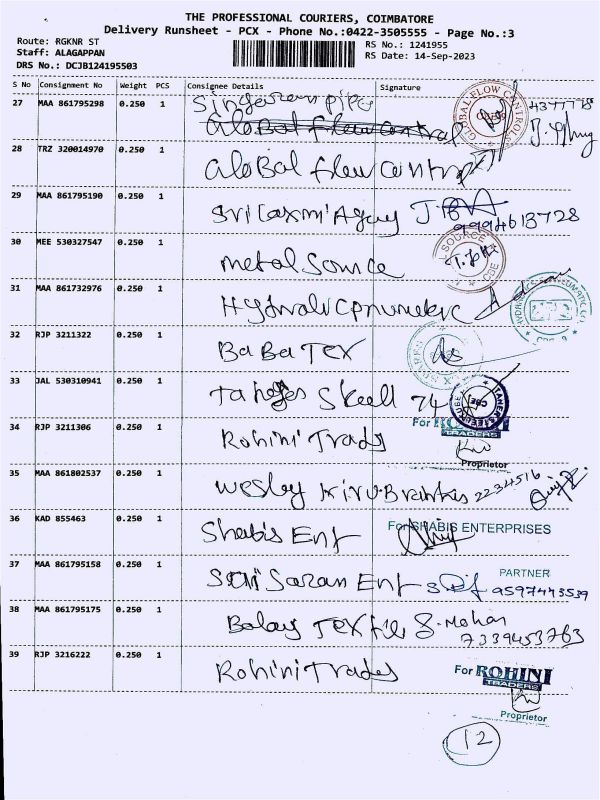 THE PROFESSIONAL COURIERS, COIMBATORE
Delivery Runsheet - PCX - Phone No.:0422-3505555 - Page No.:3
Route: RGKNR ST
RS No.: 1241955
Staff: ALAGAPPAN
RS Date: 14-Sep-2023
DRS No.: DCJB124195503
S No Consignment No Weight PCS Consignee Details Signature
27 MAA 861795298 0.250 1 Singaran pipe
Global flow control
GLOBAL FLOW CONTROL
28 TRZ 320014970 0.250 1 Global flow control
29 MAA 861795190 0.250 1 Sri Laxmi Agay
9994613728
30 MEE 530327547 0.250 1 metal Source
SOURCE CBE
31 MAA 861732976 0.250 1
32 RJP 3211322 0.250 1 BaBa Tex
33 JAL 530310941 0.250 1 74
CBE
34 RJP 3211306 0.250 1 Rohini Trads
For ROHINI
TRADERS
Proprietor
35 MAA 861802537 0.250 1 Wesley 2234516
36 KAD 855463 0.250 1 Shabis Ent
For SHABIS ENTERPRISES
PARTNER
37 MAA 861795158 0.250 1 Sri Saran Ent 9597443539
38 MAA 861795175 0.250 1 Balay Textile S. Mohan
7339453763
39 RJP 3216222 0.250 1 Rohini Trades
For ROHINI
TRADERS
Proprietor
12